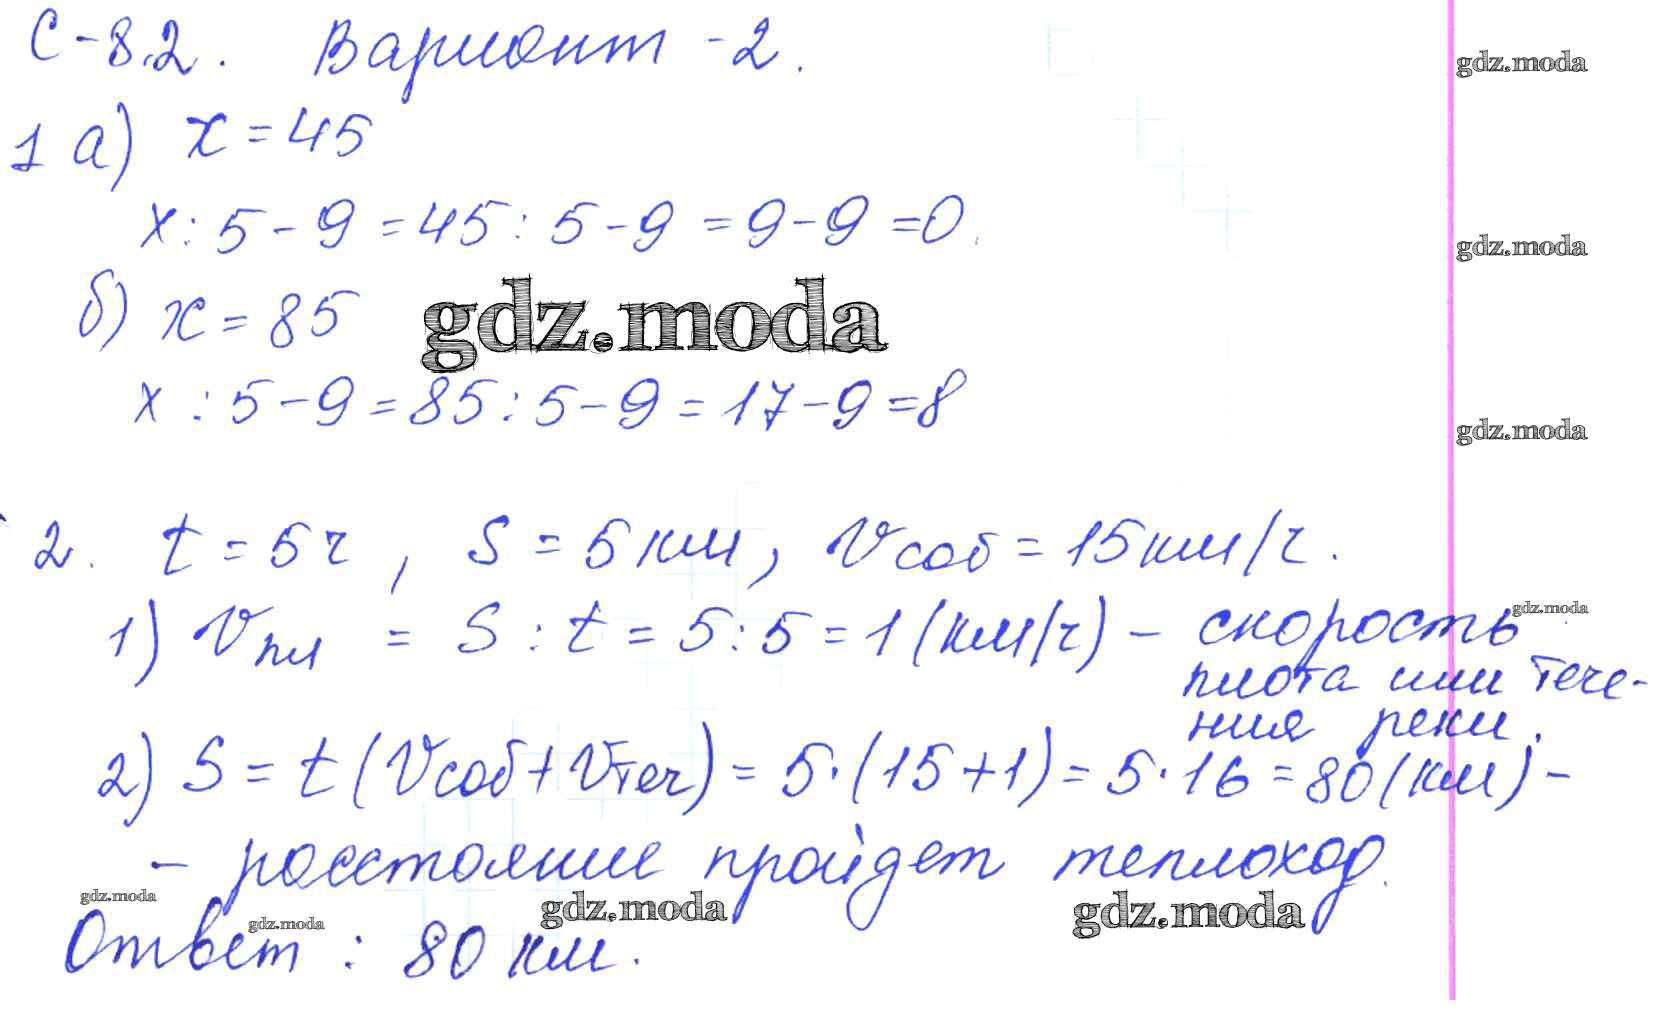 С-8.2. Вариант -2.
gdz.moda
1 а) x = 45
x : 5 - 9 = 45 : 5 - 9 = 9 - 9 = 0.
gdz.moda
б) x = 85
gdz.moda
x : 5 - 9 = 85 : 5 - 9 = 17 - 9 = 8
gdz.moda
2. t = 5 ч, S = 5 км, Vсоб = 15 км/ч.
1) Vпл = S : t = 5 : 5 = 1 (км/ч) - скорость
gdz.moda
плота или тече-
ния реки.
2) S = t (Vсоб + Vтеч) = 5 · (15 + 1) = 5 · 16 = 80 (км) -
- расстояние пройдет теплоход.
gdz.moda
gdz.moda
gdz.moda
gdz.moda
Ответ : 80 км.